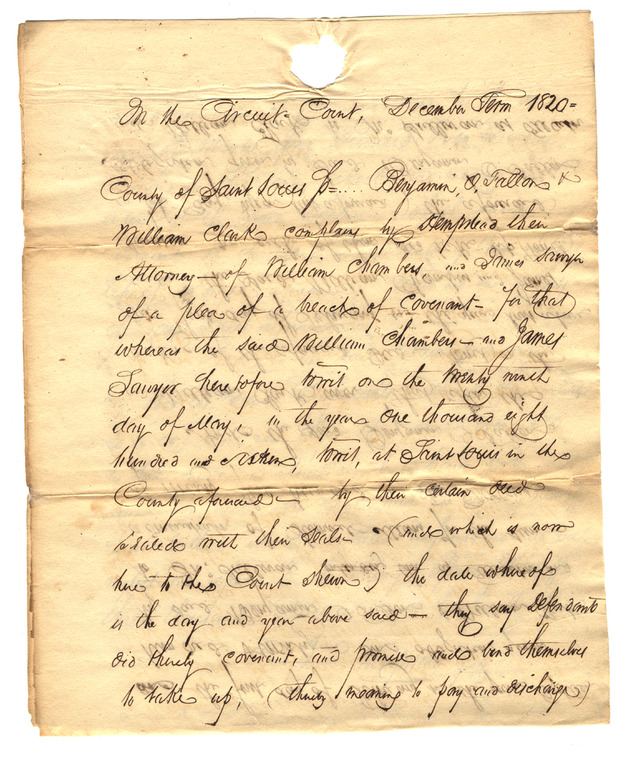 In the Circuit Court, December Term 1820=
County of Saint Louis Ss=.... Benjamin O, Fallon &
William Clark complains by Hempstead their
Attorney – of William Chambers, and James Sawyer
of a plea of a breach of Covenant – For that
whereas the said William Chambers – and James
Sawyer heretofore towit on the twenty ninth
day of May, in the year one thousand eight
hundred and towit, at Saint Louis in the
County aforesaid – by their certain deed
sealed with their seals – (and which is now
here to the Court shewn) the date whereof
is the day and year above said – they say Defendants
did thereby covenant, and promise and bind themselves
to take up, (thereby meaning to pay and discharge)